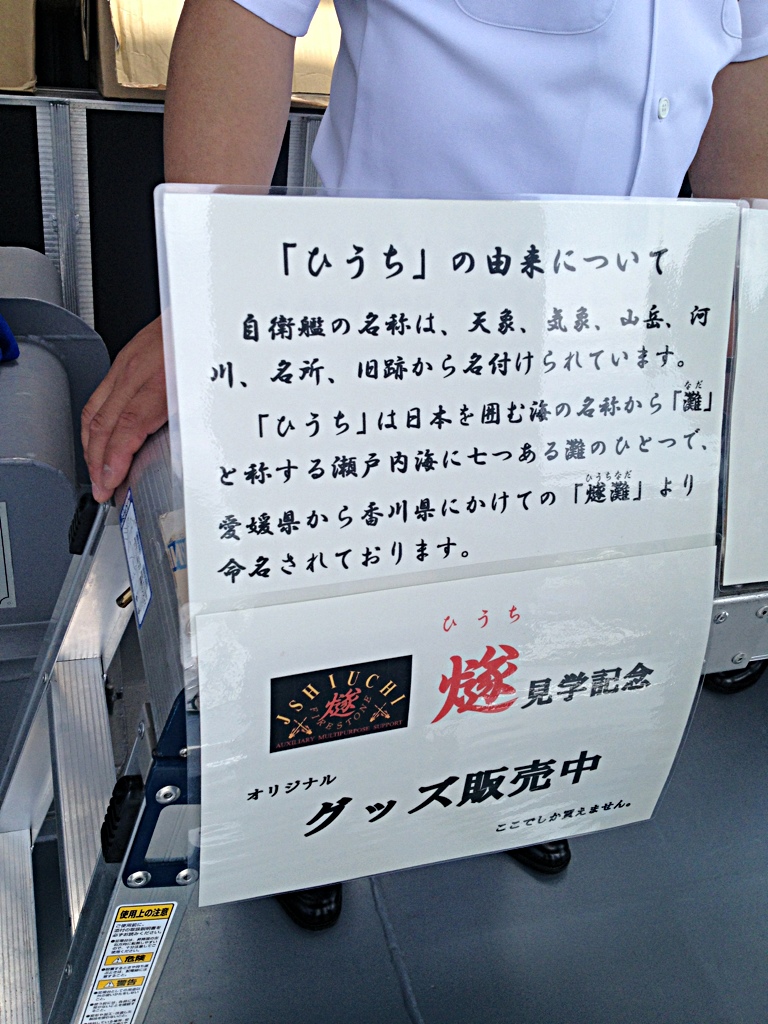 「ひうち」の由来について
自衛艦の名称は、天象、気象、山岳、河
川、名所、旧跡から名付けられています。
「ひうち」は日本を囲む海の名称から「灘」
なだ
と称する瀬戸内海に七つある灘のひとつで、
ひうちなだ
愛媛県から香川県にかけての「燧灘」より
命名されております。
ひうち
燧見学記念
JSHIUCHI
燧
FIRESTONE
AUXILIARY MULTIPURPOSE SUPPORT
オリジナル
グッズ販売中
ここでしか買えません。
使用上の注意
危険
警告